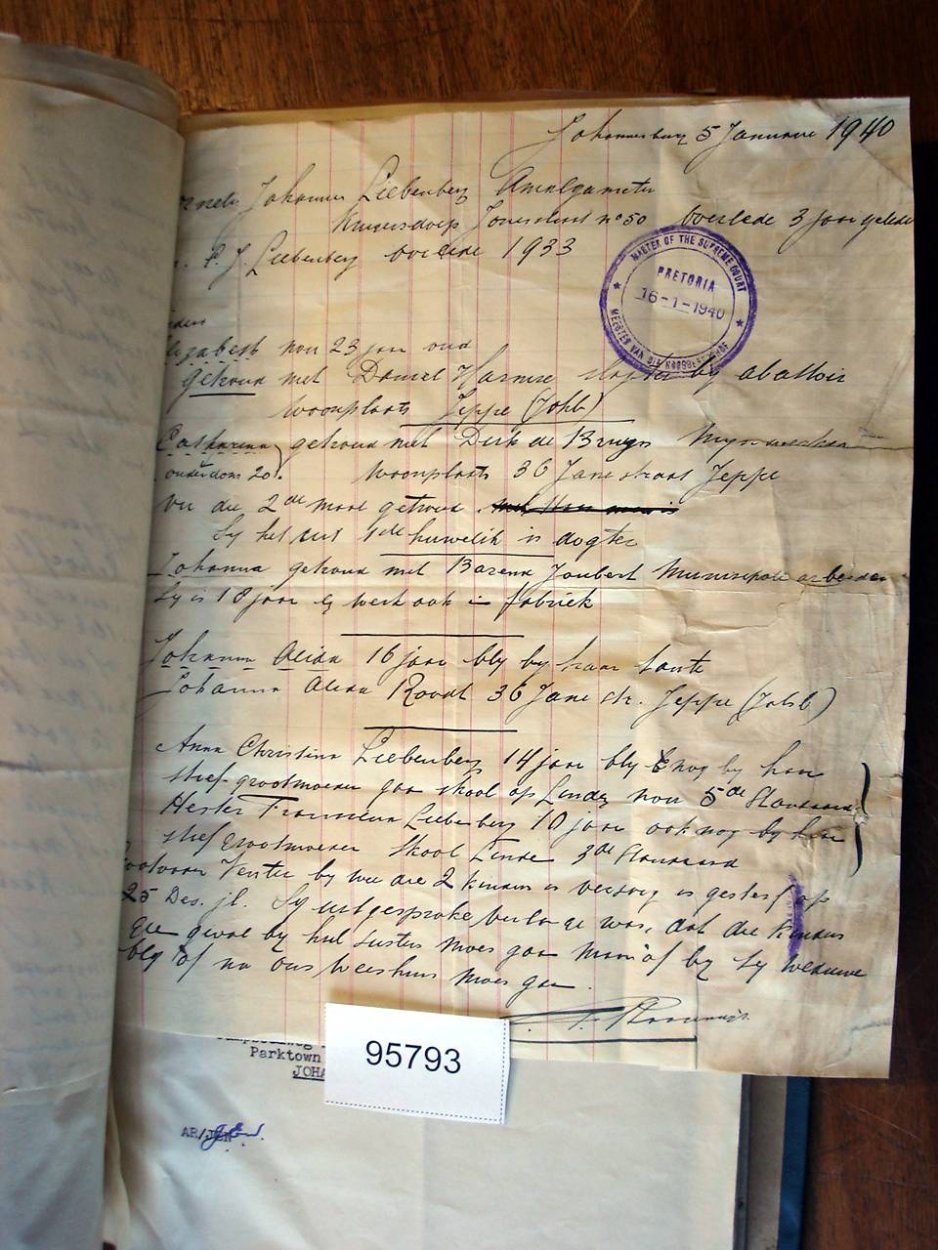 Johannesburg 5 Januarie 1940
Johannes Liebenberg Amalgamator
Krugersdorp Jonesstraat no 50 oorlede 3 jaar gelede
P. J. Liebenberg oorlede 1933
MASTER OF THE SUPREME COURT
PRETORIA
16-1-1940
MEESTER VAN DIE HOOGGEREGSHOF
nou 23 jaar oud
getroud met Daniel Harmse slagter by abattoir
woonplaats Jeppe (Johb)
Catharina getroud met Dirk de Bruyn
ouderdom 20. woonplaats 36 Jane straat Jeppe
vir die 2de maal getroud
Sy het uit 1ste huwelik 'n dogter
Johanna getroud met Barend Joubert Munisipale arbeider
Sy is 18 jaar & werk ook in fabriek
Johanna Alida 16 jaar bly by haar tante
Johanna Alida Roodt 36 Jane str. Jeppe (Johb)
Anna Christina Liebenberg 14 jaar bly nog by haar
stief-grootmoeder gaan skool op Linde nou 5de Standaard
Hester Liebenberg 10 jaar ook nog by haar
stief Grootmoeder Skool Linde 3de Standaard
Venter by wie die 2 kinders is versorg is gesterf op
25 Des. jl. Sy uitgesproke verlange was, dat die kinders
by hul susters moes gaan by sy weduwee
bly of na ons weeshuis moes gaan.
95793
Parktown
JOHA
AR/